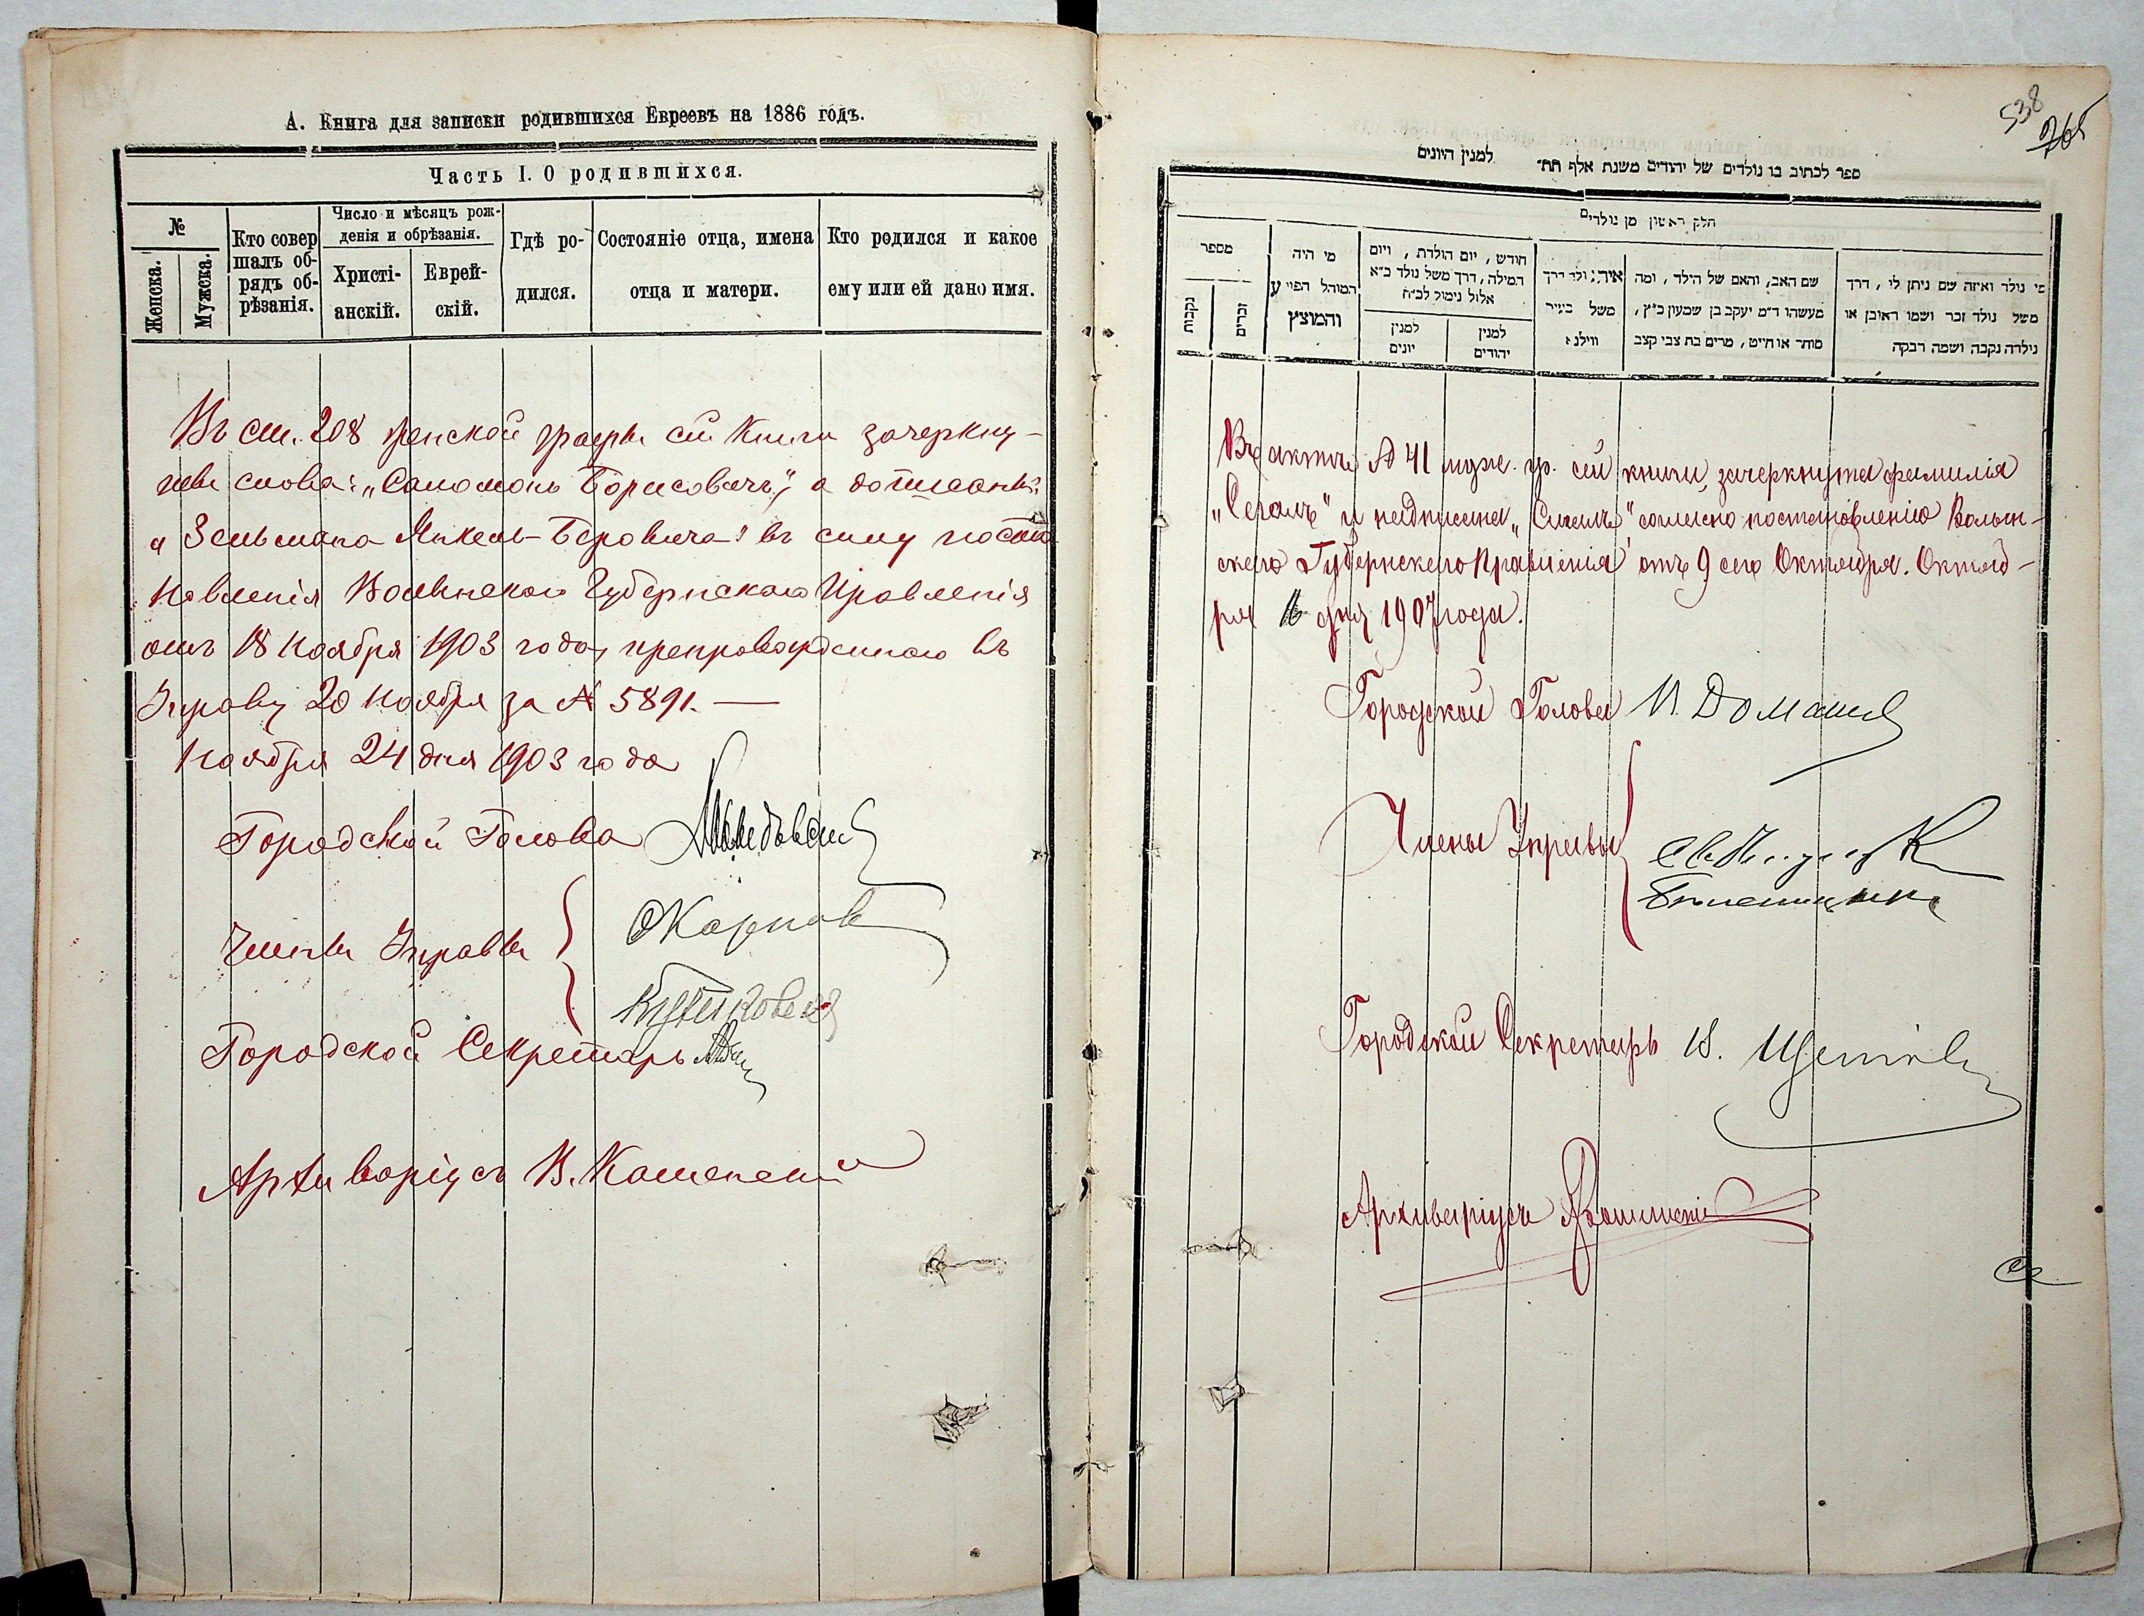 А. Книга для записки родившихся Евреевъ на 1886 годъ.
Часть I. О родившихся.
№
Женска.
Мужска.
Кто совер
шалъ об-
рядъ об-
рѣзанія.
Число и мѣсяцъ рож-
денія и обрѣзанія.
Христі-
анскій.
Еврей-
скій.
Гдѣ ро-
дился.
Состояніе отца, имена
отца и матери.
Кто родился и какое
ему или ей дано имя.
Въ ст. 208 женской графы сей Книги зачеркну-
ты слова: „Соломонъ Борисовичъ", а дописаны:
„Зельмана Янкель-Беровича" въ силу поста
новленія Волынскаго Губернскаго Правленія
отъ 18 Ноября 1903 года, препровожденнаго въ
Управу 20 Ноября за № 5891. —
Ноября 24 дня 1903 года
Городской Голова
Члены Управы
Карпов
Городской Секретарь
Архиваріусъ В.
538
ספר לכתוב בו נולדים של יהודים משנת אלף תת״ למנין היונים
חלק ראשון מן נולדים
מספר
נקבות
זכרים
מי היה
המוהל הפויע
והמוצץ
חודש, יום הולדת, ויום
המילה, דרך משל נולד כ״א
אלול נימול לכ״ח
למנין
יונים
למנין
יהודים
איה נולד דרך
משל בעיר
ווילנא
שם האב, והאם של הילד, ומה
מעשהו ד״מ יעקב בן שמעון כ״ץ,
סוחר או חייט, מרים בת צבי קצב
מי נולד ואיזה שם ניתן לו, דרך
משל נולד זכר ושמו ראובן או
נילדה נקבה ושמה רבקה
Въ актѣ № 41 муж. гр. сей книги, зачеркнута фамилія
„Сегалъ" и надписана „Сигалъ" согласно постановленію Волын-
скаго Губернскаго Правленія отъ 9 сего Октября. Октяб-
ря 16 дня 1907 года.
Городской Голова И. Доманев
Члены Управы
Городской Секретарь
Архиваріусъ